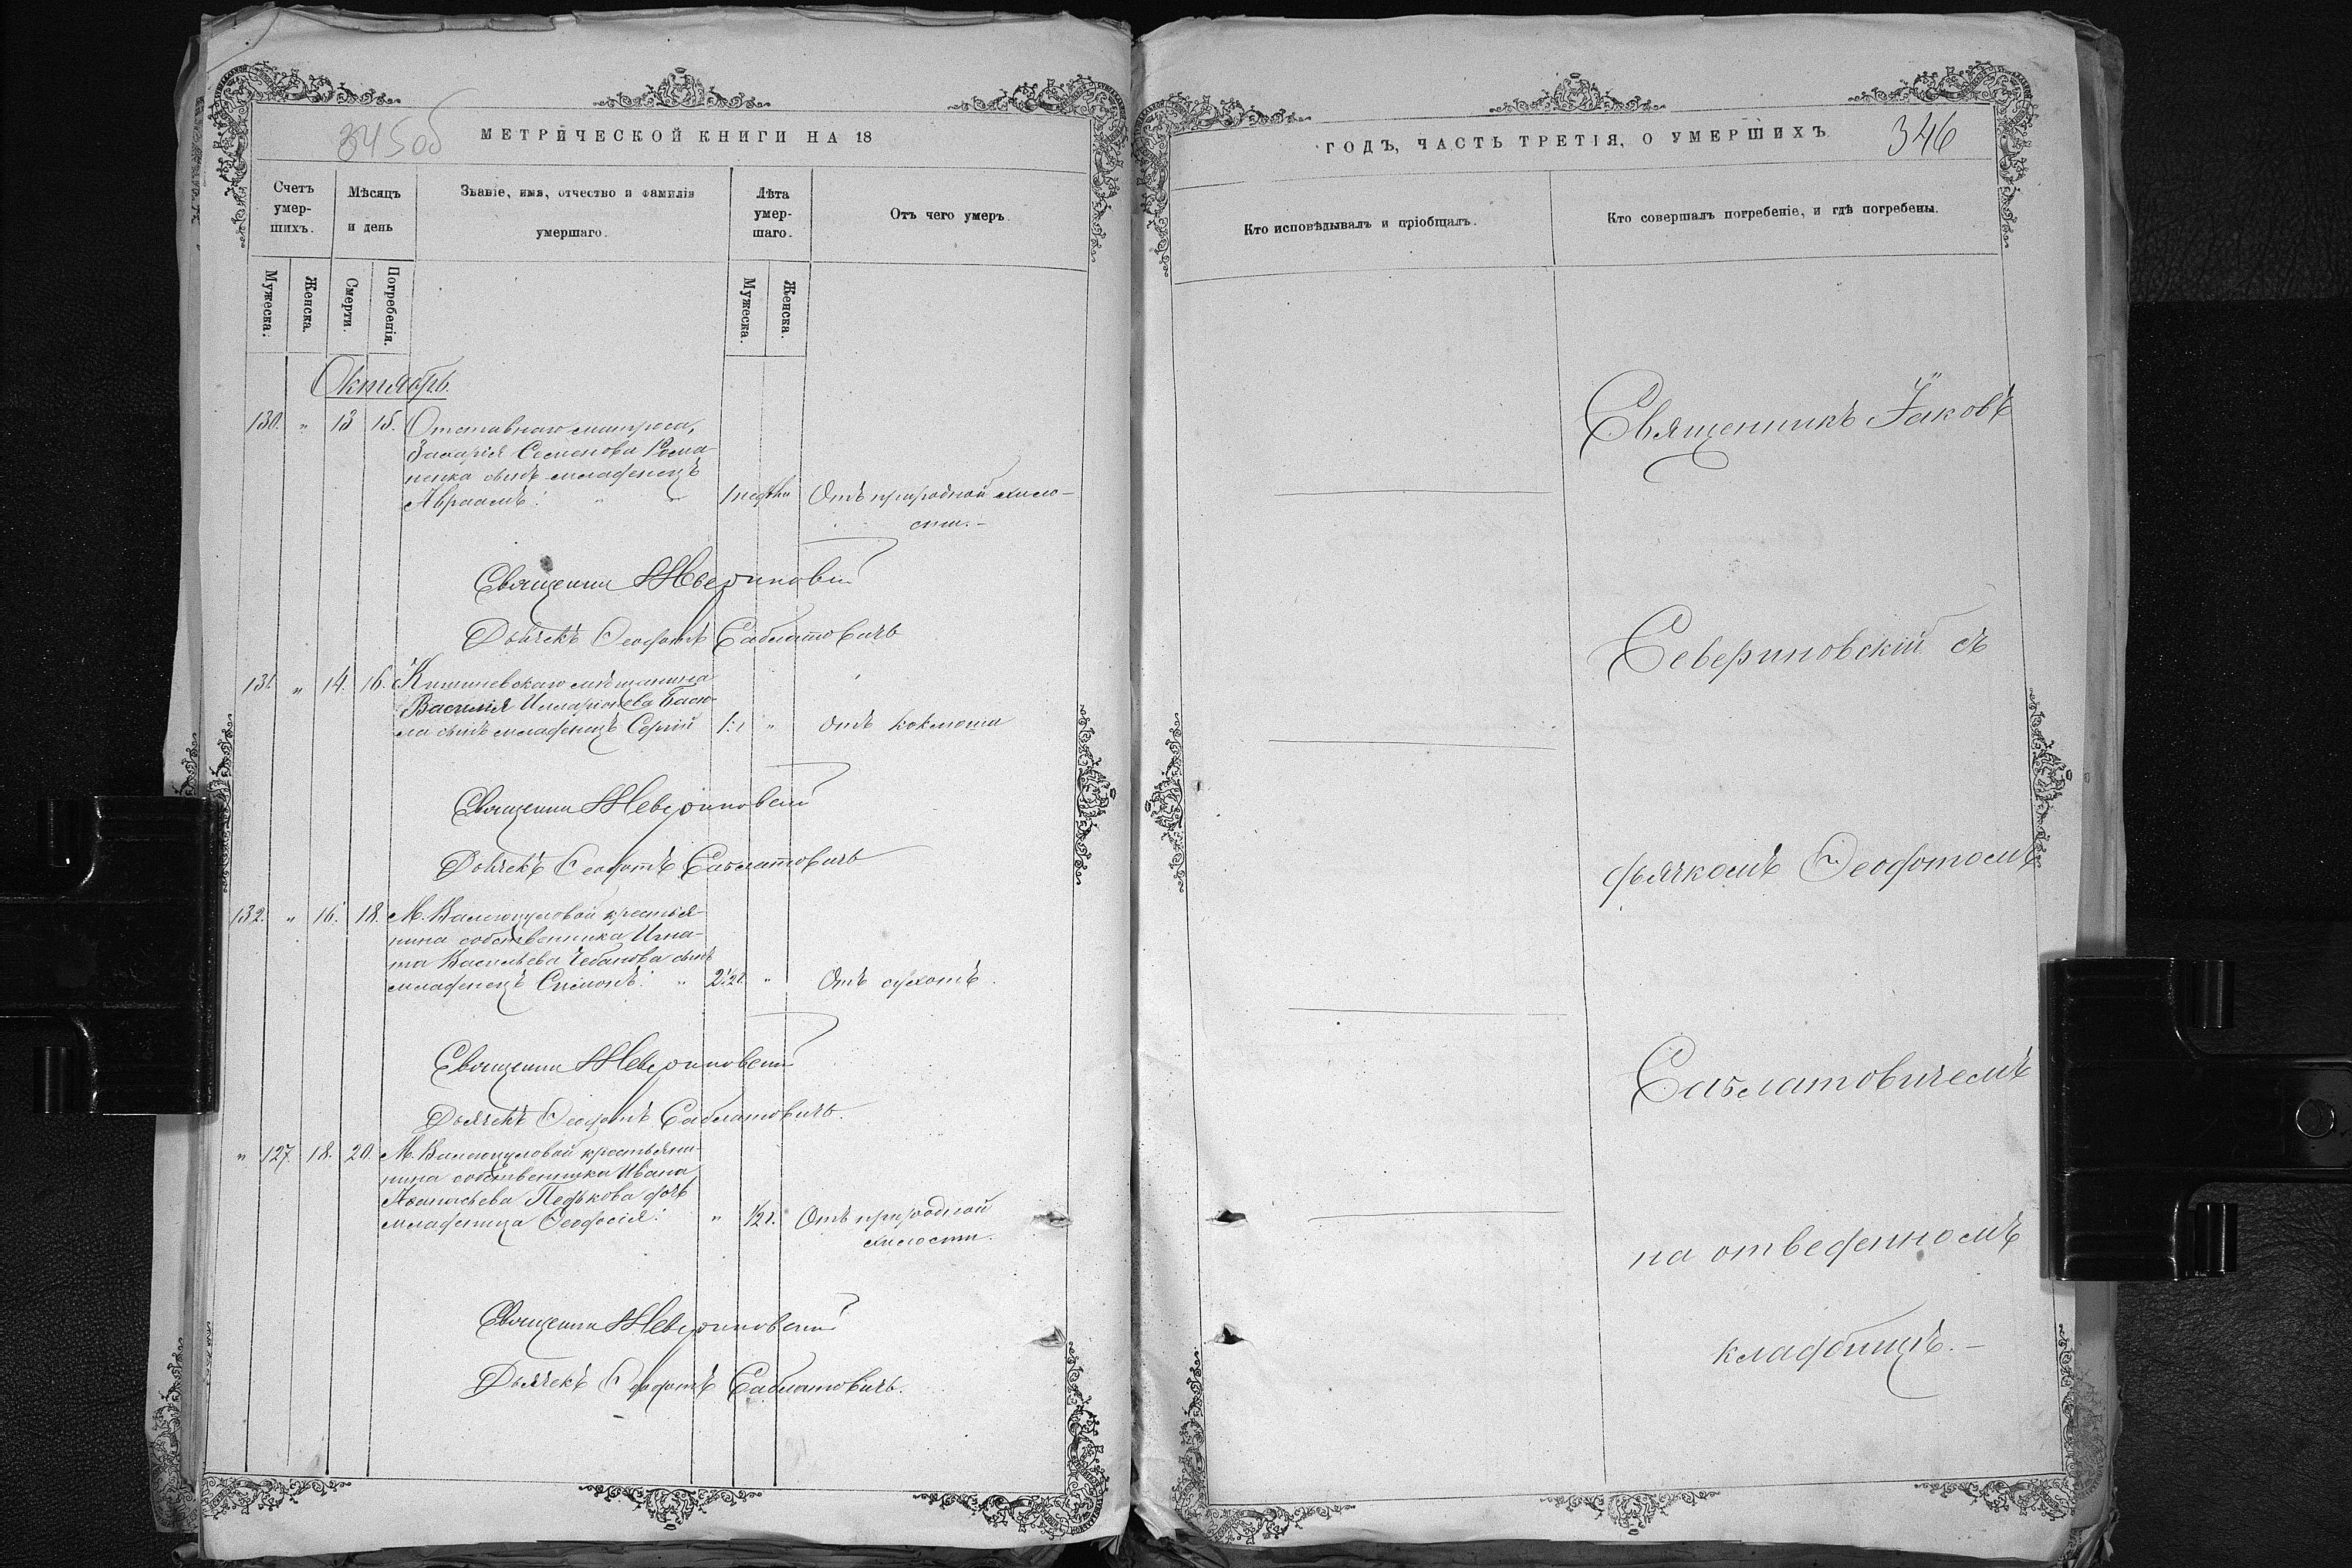 345об
МЕТРИЧЕСКОЙ КНИГИ НА 18
Счетъ умер-шихъ.
Мѣсяцъ и день
Званіе, имя, отчество и фамилія умершаго.
Лѣта умер-шаго.
Отъ чего умеръ.
Мужеска.
Женска.
Смерти.
Погребенія.
Мужеска.
Женска.
Октябрь.
130. " 13 15. Отставнаго матроса,
Захарія Семенова Рома-
ненка сынъ младенецъ
Авраамъ. 1 недѣли Отъ природной хило-
сти.
Священникъ Севериновскій
Дьячекъ Ѳеодотъ Саблатовичъ
131 " 14. 16. Кишиневскаго мѣщанина
Василія Илларіонова
сынъ младенецъ Сергій 1 г " Отъ коклюша
Священникъ Севериновскій
Дьячекъ Ѳеодотъ Саблатовичъ
132. " 16. 18. М. крестья-
нина собственника Игна-
та Васильева Чебанова сынъ
младенецъ Симонъ. " 2 1/2 г. " Отъ сухотъ.
Священникъ Севериновскій
Дьячекъ Ѳеодотъ Саблатовичъ.
" 127. 18. 20. М. крестьяни-
нина собственника Ивана
Аѳанасьева Педькова дочь
младеница Ѳеодосія. " 1/2 г. Отъ природной
хилости.
Священникъ Севериновскій
Дьячекъ Ѳеодотъ Саблатовичъ.
ГОДЪ, ЧАСТЬ ТРЕТІЯ, О УМЕРШИХЪ.
346
Кто исповѣдывалъ и пріобщалъ.
Кто совершалъ погребеніе, и гдѣ погребены.
Священникъ Іаковъ
Севериновскій съ
дьячкомъ Ѳеодотомъ
Саблатовичемъ
на отведенномъ
кладбищѣ.